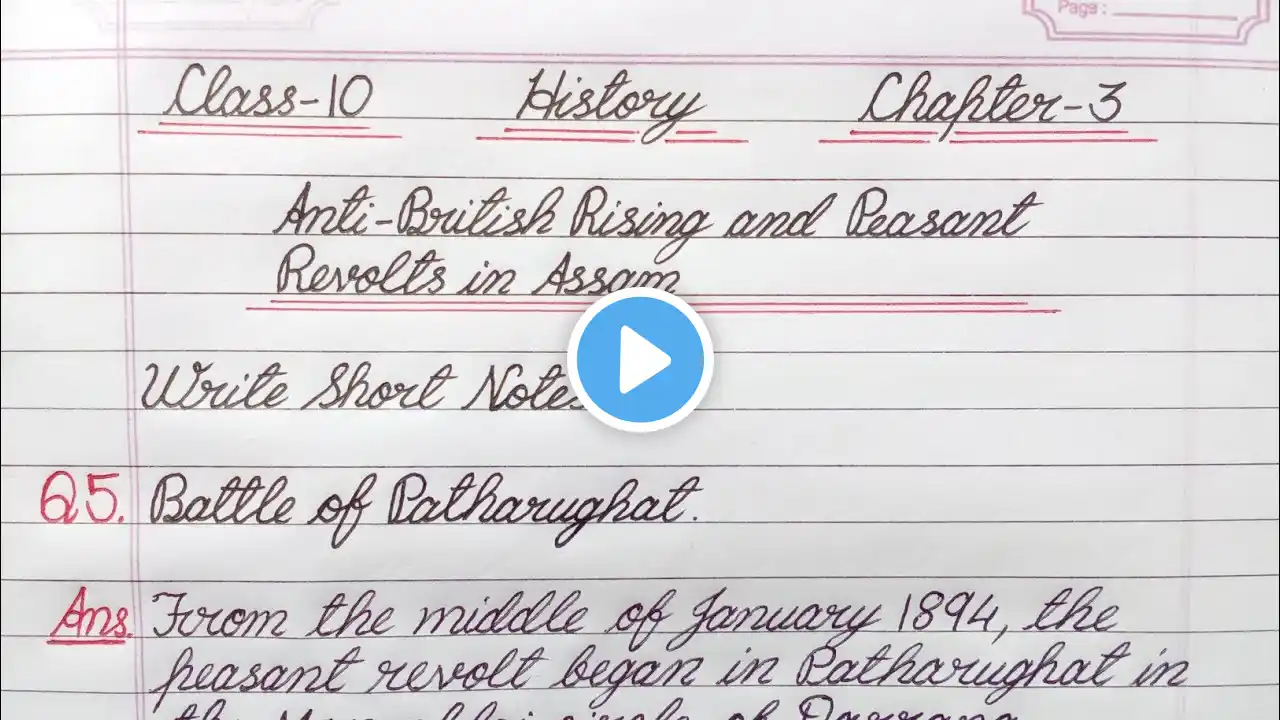 Page:
Class-10 History Chapter-3
Anti-British Rising and Peasant
Revolts in Assam
Write Short Notes
Q5. Battle of Patharughat.
Ans. From the middle of January 1894, the
peasant revolt began in Patharughat in
the circle of Darrang